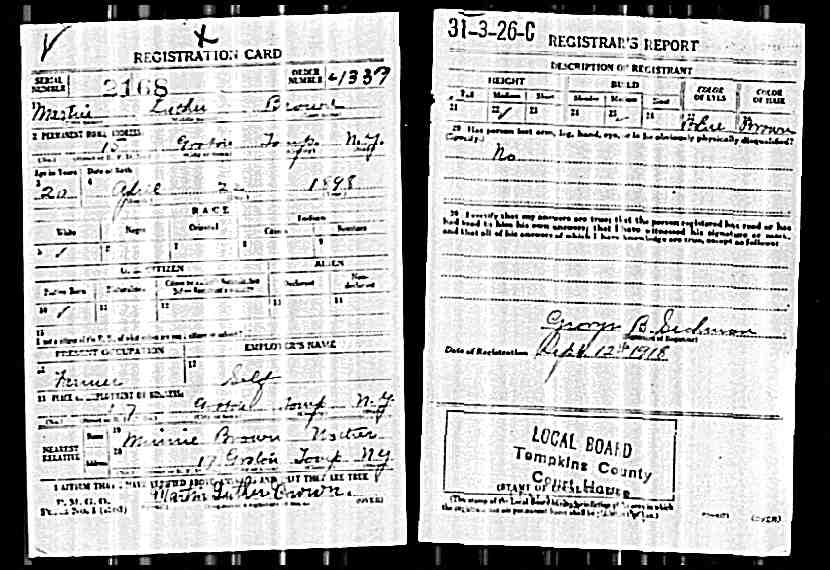 REGISTRATION CARD
SERIAL NUMBER 2168 ORDER NUMBER 1337
Martin Luther Brown
2 PERMANENT HOME ADDRESS:
15 Groton Tomp. N.Y.
Age in Years Date of Birth
20 April 22 1898
RACE
White Negro Oriental Indian
Citizen Noncitizen
5 ✓ 6 7 8 9
U. S. CITIZEN ALIEN
Native Born Naturalized Declarant Non-declarant
10 ✓ 11 12 13 14
15
If not a citizen of the U. S., of what nation are you a citizen or subject?
PRESENT OCCUPATION EMPLOYER'S NAME
16 Farmer 17 Self
18 PLACE OF EMPLOYMENT OR BUSINESS:
17 Groton Tomp N.Y.
NEAREST RELATIVE Name 19 Minnie Brown Mother
Address 20 17 Groton Tomp NY
I AFFIRM THAT I HAVE VERIFIED ABOVE ANSWERS AND THAT THEY ARE TRUE
P. M. G. O.
Form No. 1 (Red) Martin Luther Brown. (OVER)
31-3-26-C REGISTRAR'S REPORT
DESCRIPTION OF REGISTRANT
HEIGHT BUILD COLOR OF EYES COLOR OF HAIR
Tall Medium Short Slender Medium Stout
21 22 ✓ 23 24 25 ✓ 26 27 Blue 28 Brown
29 Has person lost arm, leg, hand, eye, or is he obviously physically disqualified?
(Specify.)
No
30 I certify that my answers are true; that the person registered has read or has
had read to him his own answers; that I have witnessed his signature or mark,
and that all of his answers of which I have knowledge are true, except as follows:
George B.
(Signature of Registrar)
Date of Registration Sept 12th 1918
LOCAL BOARD
Tompkins County
Court House
(STAMP OF LOCAL BOARD)
(The stamp of the Local Board having jurisdiction of the area in which
the registrant has his permanent home shall be placed in this box.)
(OVER)